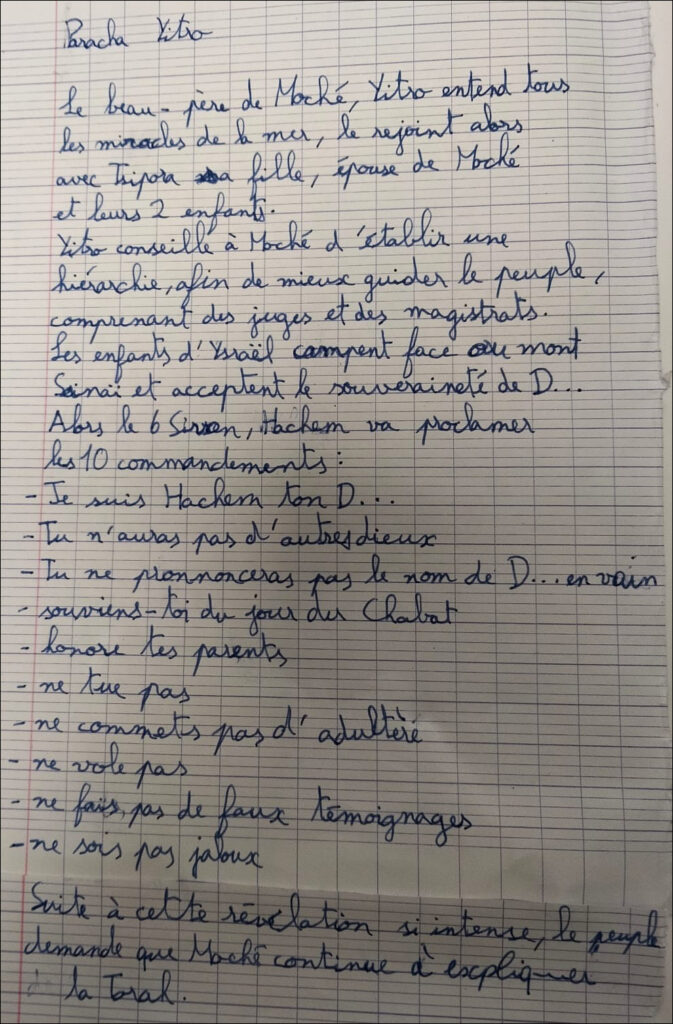 Paracha Yitro
Le beau-père de Moché, Yitro entend tous
les miracles de la mer, le rejoint alors
avec Tsipora sa fille, épouse de Moché
et leurs 2 enfants.
Yitro conseille à Moché d'établir une
hiérarchie, afin de mieux guider le peuple,
comprenant des juges et des magistrats.
Les enfants d'Ysraël campent face au mont
Sinaï et acceptent le souveraineté de D...
Alors le 6 Sivan, Hachem va proclamer
les 10 commandements :
- Je suis Hachem ton D...
- Tu n'auras pas d'autres dieux
- Tu ne pronnonceras pas le nom de D... en vain
- souviens-toi du jour du Chabat
- honore tes parents
- ne tue pas
- ne commets pas d'adultère
- ne vole pas
- ne fais pas de faux témoignages
- ne sois pas jaloux
Suite à cette révélation si intense, le peuple
demande que Moché continue à expliquer
la Torah.